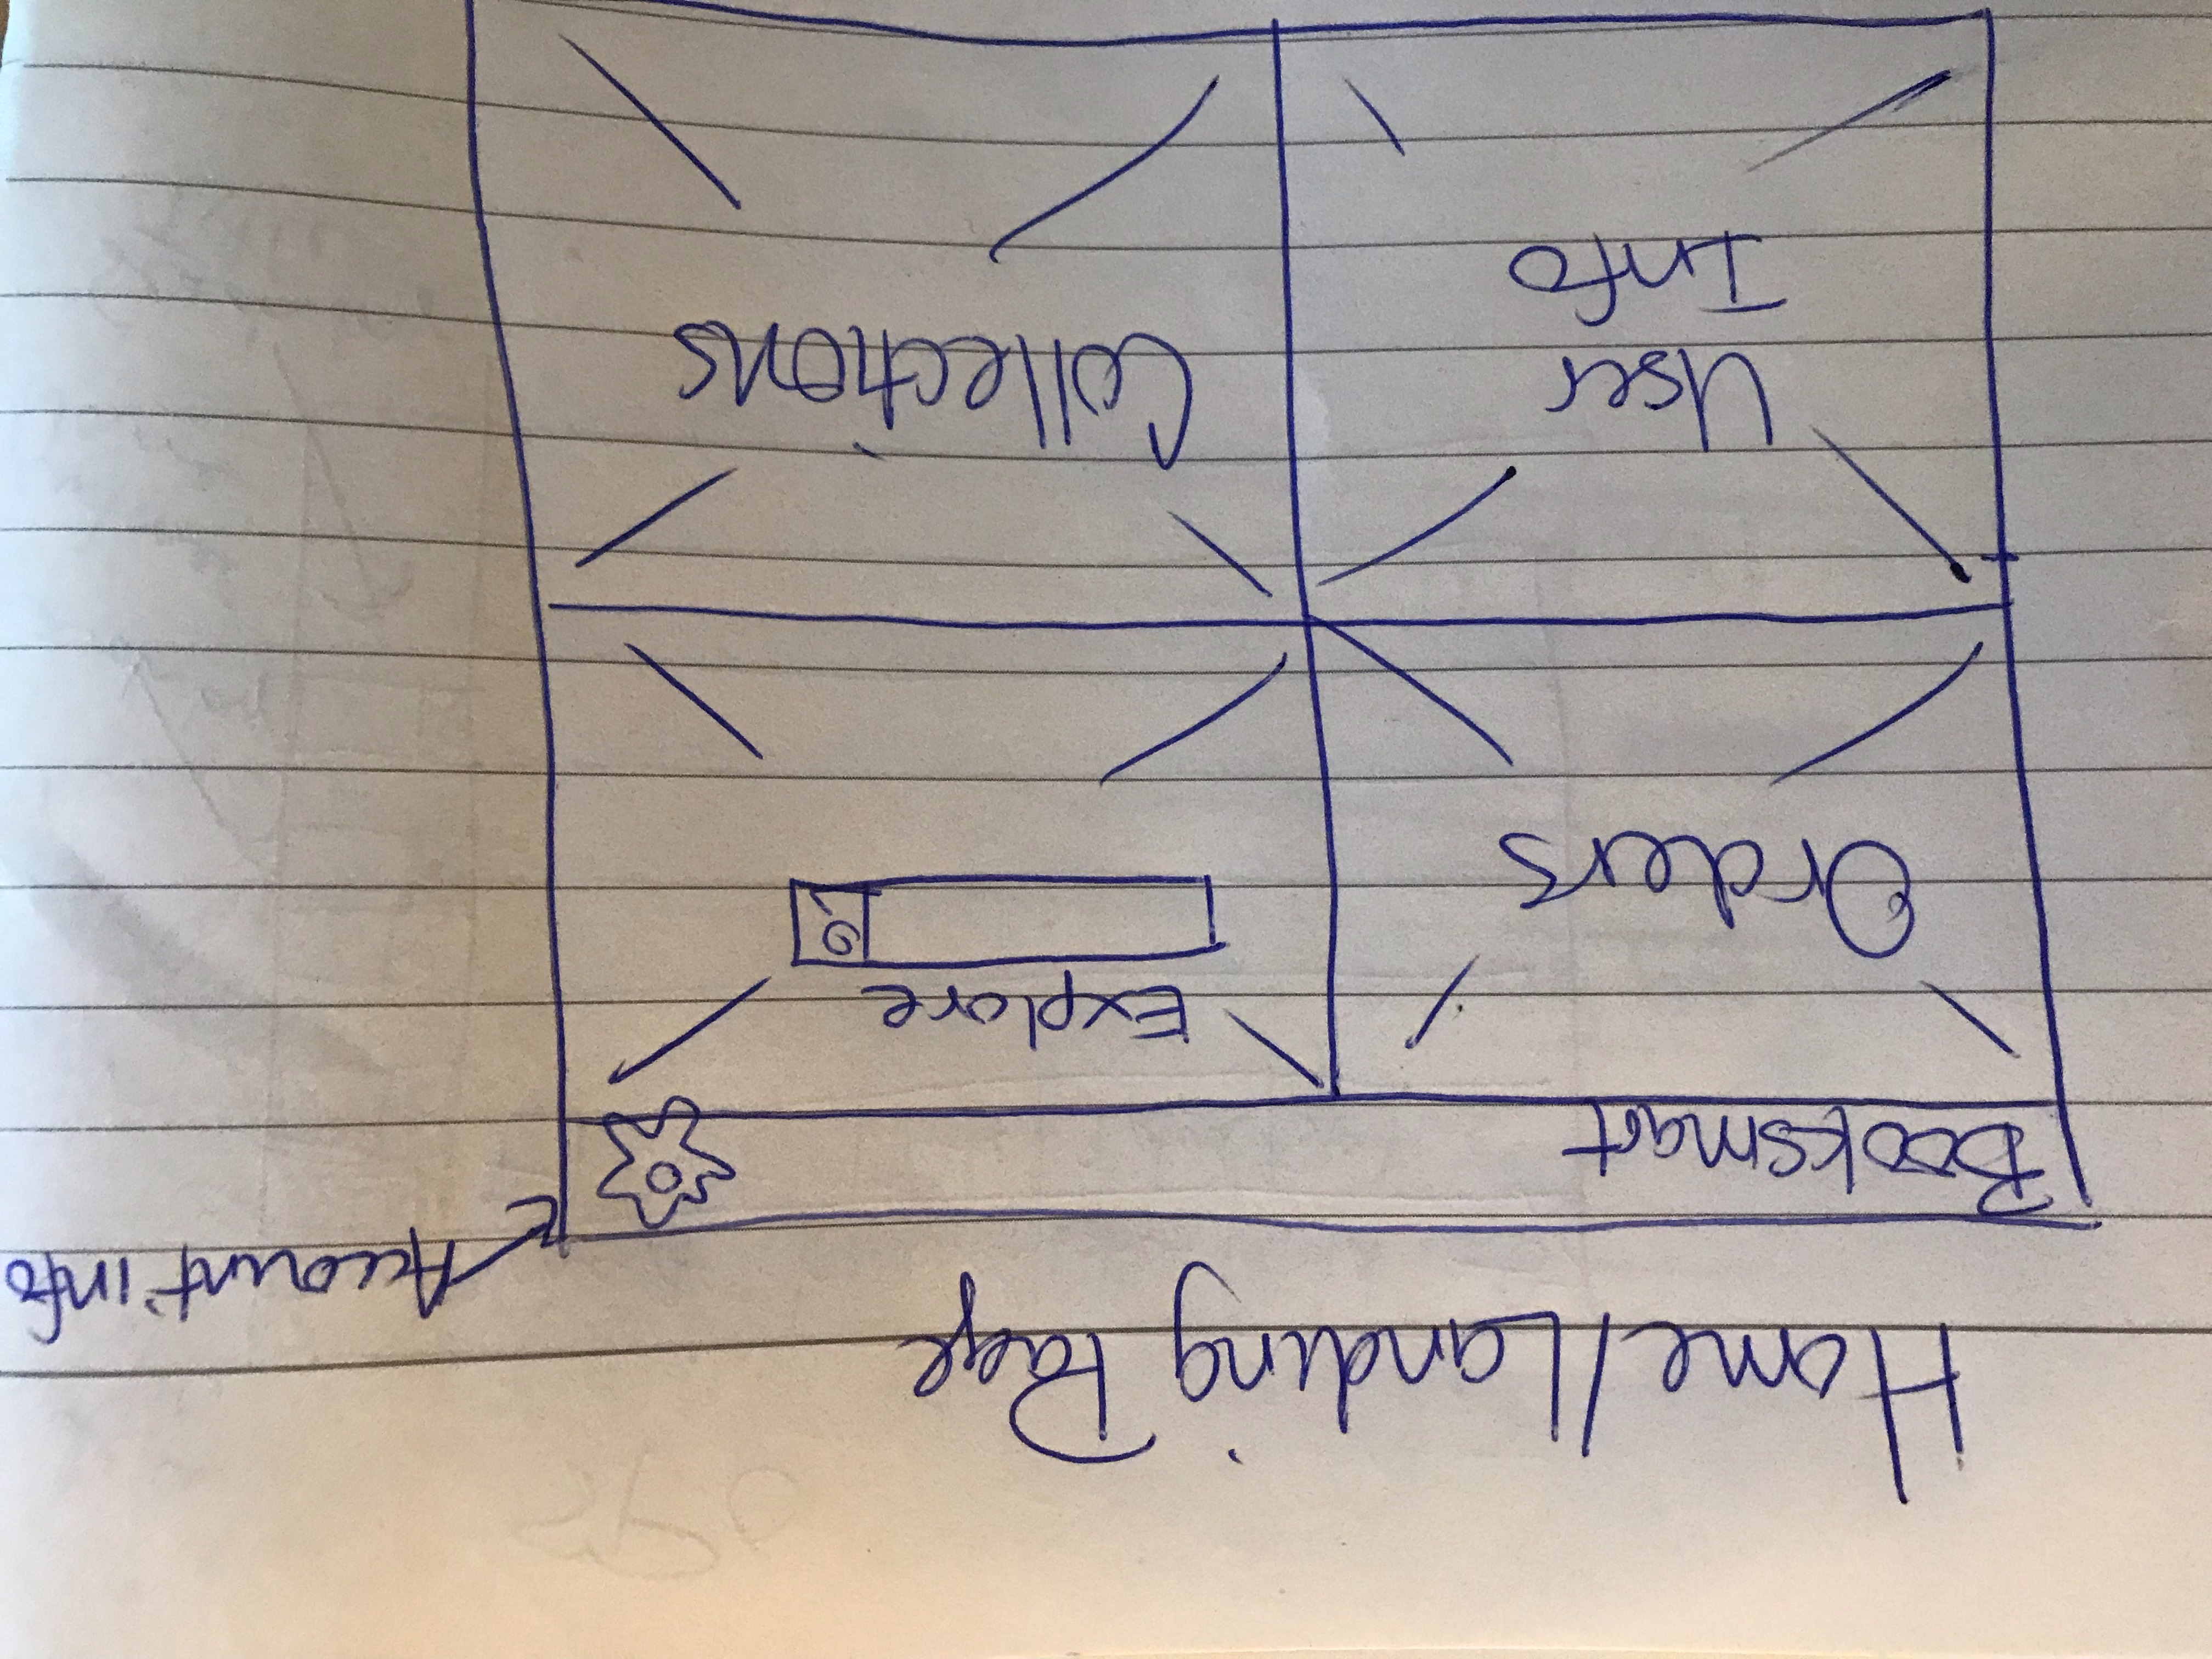 Home/Landing Page
Account info
Booksmart
Orders
Explore
User
Info
Collections